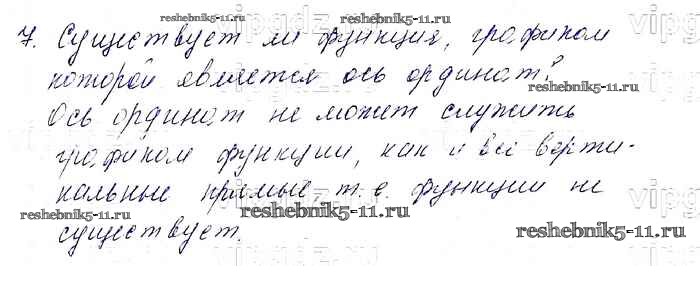 7. Существует ли функция, графиком
которой является ось ординат?
Ось ординат не может служить
графиком функции, как и все верти-
кальные прямые, т.е. функции не
существует.
reshebnik5-11.ru
reshebnik5-11.ru
reshebnik5-11.ru
reshebnik5-11.ru
reshebnik5-11.ru
reshebnik5-11.ru